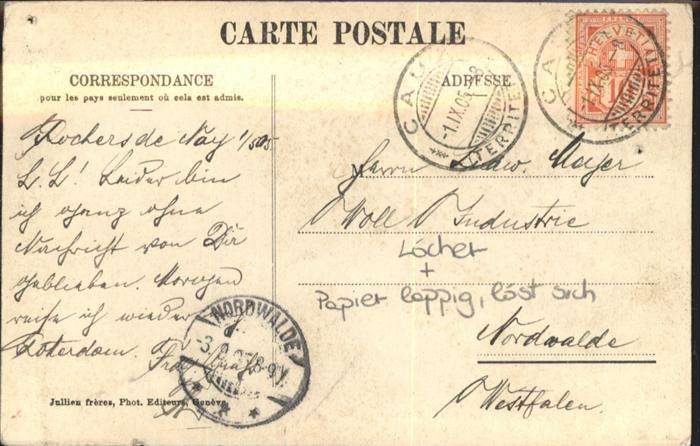 CARTE POSTALE
CORRESPONDANCE
pour les pays seulement où cela est admis.
ADRESSE
HELVETIA
10
1.IX.05
1.IX.05
Rochers de Nay 1/9 05
L. L! Leider bin
ich ganz ohne
Nachricht von Dir
geblieben. Morgen
reise ich wieder
Roterdam.
Herrn Ludw. Mayer
Woll Industrie
Löcher
+
Papier lappig, löst sich
Nordwalde
Westfalen.
NORDWALDE
Jullien frères, Phot. Editeurs, Genève.